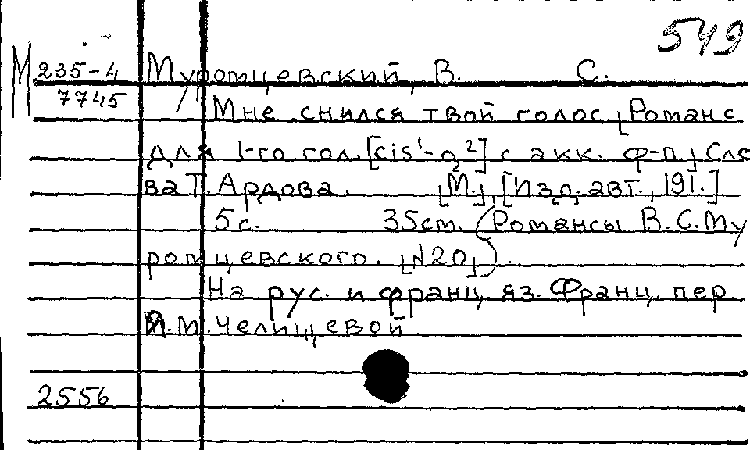 549
М 235-4 Муромцевский, В. С.
7745 Мне снился твой голос [Романс
для 1-го гол. [cis¹-g²] с акк. ф-п.] Сло
ва Т. Ардова. [М.], [Изд. авт., 191.]
5 с. 35 см. (Романсы В.С.Му
ромцевского. [№20])
На рус. и франц. яз. Франц. пер.
М. Челищевой
2556